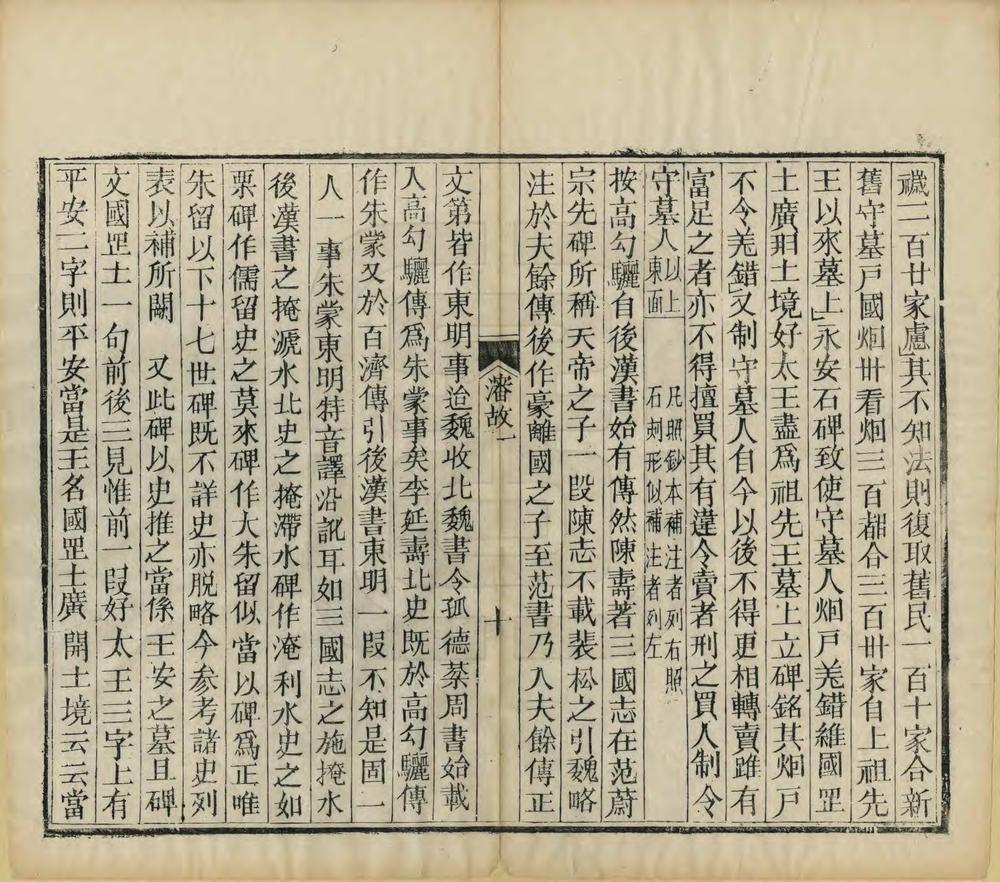 穢二百廿家慮其不知法則復取舊民一百十家合新
舊守墓戶國烟卅看烟三百都合三百卅家自上祖先
王以來墓上永安石碑致使守墓人烟戶羌錯維國罡
土廣開土境好太王盡爲祖先王墓上立碑銘其烟戶
不令羌錯又制守墓人自今以後不得更相轉賣雖有
富足之者亦不得擅買其有違令賣者刑之買人制令
守墓人以上東面 凡照鈔本補注者列右照石刻形似補注者列左
按高勾驪自後漢書始有傳然陳壽著三國志在范蔚
宗先碑所稱天帝之子一段陳志不載裴松之引魏略
注於夫餘傳後作豪離國之子至范書乃入夫餘傳正
瀋故一
十
文第皆作東明事迨魏收北魏書令孤德棻周書始載
入高勾驪傳爲朱蒙事矣李延壽北史既於高勾驪傳
作朱蒙又於百濟傳引後漢書東明一段不知是固一
人一事朱蒙東明特音譯沿訛耳如三國志之施掩水
後漢書之掩㴲水北史之掩滯水碑作淹利水史之如
栗碑作儒留史之莫來碑作大朱留似當以碑爲正唯
朱留以下十七世碑既不詳史亦脫略今參考諸史列
表以補所闕 又此碑以史推之當係王安之墓且碑
文國罡土一句前後三見惟前一段好太王三字上有
平安二字則平安當是王名國罡土廣開土境云云當